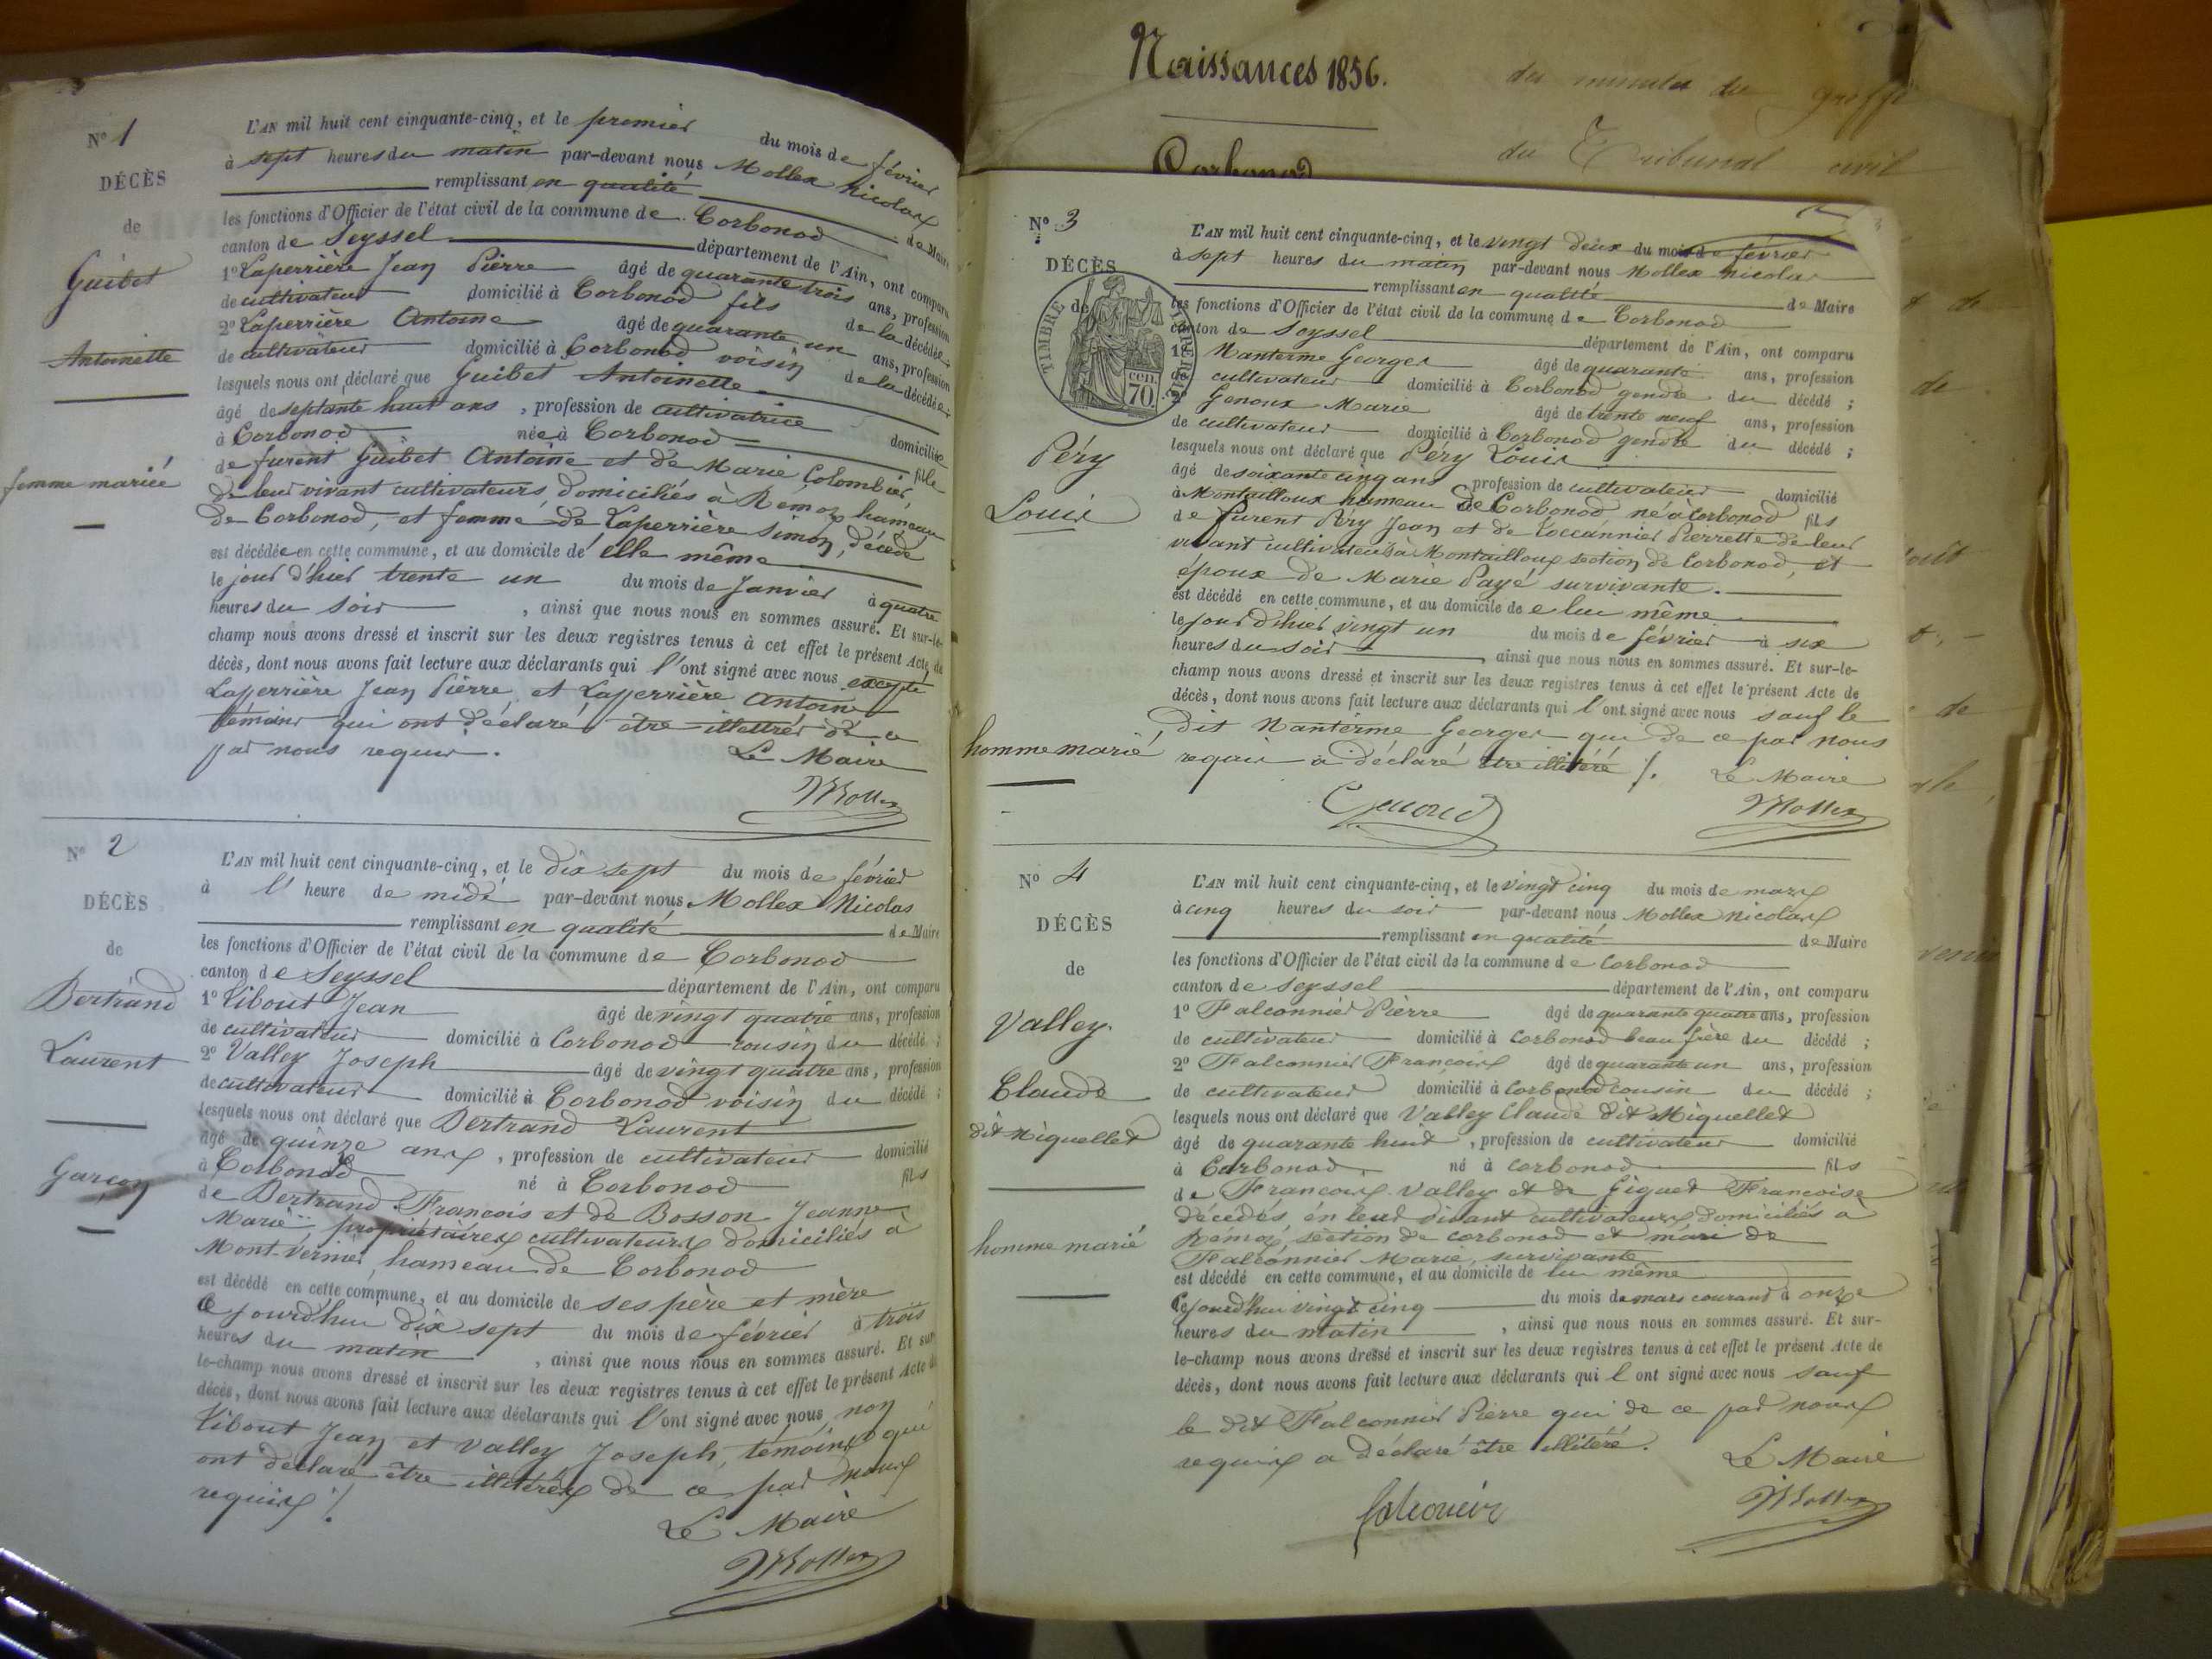 Nº 1
DÉCÈS
de
Guibet
Antoinette
femme mariée
L'AN mil huit cent cinquante-cinq, et le premier du mois de février
à sept heures du matin par-devant nous Mollex Nicolas
remplissant en qualité de Maire
les fonctions d'Officier de l'état civil de la commune de Corbonod
canton de Seyssel département de l'Ain, ont comparu
1º Laperrière Jean Pierre âgé de quarante trois ans, profession
de cultivateur domicilié à Corbonod fils de la décédée
2º Laperrière Antoine âgé de quarante un ans, profession
de cultivateur domicilié à Corbonod voisin de la décédée ;
lesquels nous ont déclaré que Guibet Antoinette
âgé de septante huit ans , profession de cultivatrice domiciliée
à Corbonod née à Corbonod fille
de furent Guibet Antoine et de Marie Colombier,
de leur vivant cultivateurs domiciliés à Rémoz hameau
de Corbonod, et femme de Laperrière Simon, décédé
est décédée en cette commune, et au domicile de elle même
le jour d'hier trente un du mois de Janvier à quatre
heures du soir , ainsi que nous nous en sommes assuré. Et sur-le-
champ nous avons dressé et inscrit sur les deux registres tenus à cet effet le présent Acte de
décès, dont nous avons fait lecture aux déclarants qui l'ont signé avec nous excepté
Laperrière Jean Pierre, et Laperrière Antoine
témoins qui ont déclaré être illettrés de ce
par nous requis.
Le Maire
Mollex
Nº 2
DÉCÈS
de
Bertrand
Laurent
Garçon
L'AN mil huit cent cinquante-cinq, et le dix sept du mois de février
à l' heure de midi par-devant nous Mollex Nicolas
remplissant en qualité de Maire
les fonctions d'Officier de l'état civil de la commune de Corbonod
canton de Seyssel département de l'Ain, ont comparu
1º Libout Jean âgé de vingt quatre ans, profession
de cultivateur domicilié à Corbonod cousin du décédé ;
2º Valley Joseph âgé de vingt quatre ans, profession
de cultivateur domicilié à Corbonod voisin du décédé ;
lesquels nous ont déclaré que Bertrand Laurent
âgé de quinze ans , profession de cultivateur domicilié
à Corbonod né à Corbonod fils
de Bertrand François et de Bosson Jeanne
Marie propriétaires cultivateurs domiciliés à
Mont-Vernier, hameau de Corbonod
est décédé en cette commune, et au domicile de ses père et mère
ce jourd'hui dix sept du mois de février à trois
heures du matin , ainsi que nous nous en sommes assuré. Et sur
le-champ nous avons dressé et inscrit sur les deux registres tenus à cet effet le présent Acte de
décès, dont nous avons fait lecture aux déclarants qui l'ont signé avec nous non
Libout Jean et Valley Joseph, témoins qui
ont déclaré être illitérés de ce par nous
requis /.
Le Maire
Mollex
Naissances 1856.
Corbonod
des minutes du greffe
du Tribunal civil
Nº 3
DÉCÈS
de
TIMBRE IMPERIAL
70 cen.
Péry
Louis
homme marié
L'AN mil huit cent cinquante-cinq, et le vingt deux du mois de février
à sept heures du matin par-devant nous Mollex Nicolas
remplissant en qualité de Maire
les fonctions d'Officier de l'état civil de la commune de Corbonod
canton de Seyssel département de l'Ain, ont comparu
1º Nanterme Georges âgé de quarante ans, profession
de cultivateur domicilié à Corbonod gendre du décédé ;
2º Genoux Marie âgé de trente neuf ans, profession
de cultivateur domicilié à Corbonod gendre du décédé ;
lesquels nous ont déclaré que Péry Louis
âgé de soixante cinq ans profession de cultivateur domicilié
à Montailloux hameau de Corbonod né à Corbonod fils
de furent Péry Jean et de Coccannier Pierrette de leur
vivant cultivateurs à Montailloux section de Corbonod, et
époux de Marie Payé survivante.
est décédé en cette commune, et au domicile de e lui même
le jour d'hier vingt un du mois de février à six
heures du soir ainsi que nous nous en sommes assuré. Et sur-le-
champ nous avons dressé et inscrit sur les deux registres tenus à cet effet le présent Acte de
décès, dont nous avons fait lecture aux déclarants qui l'ont signé avec nous sauf le
dit Nanterme Georges qui de ce par nous
requis a déclaré être illitéré /. Le Maire
Mollex
Nº 4
DÉCÈS
de
Valley
Claude
dit Miquellet
homme marié
L'AN mil huit cent cinquante-cinq, et le vingt cinq du mois de mars
à cinq heures du soir par-devant nous Mollex Nicolas
remplissant en qualité de Maire
les fonctions d'Officier de l'état civil de la commune de Corbonod
canton de Seyssel département de l'Ain, ont comparu
1º Falconnier Pierre âgé de quarante quatre ans, profession
de cultivateur domicilié à Corbonod beau frère du décédé ;
2º Falconnier François âgé de quarante un ans, profession
de cultivateur domicilié à Corbonod cousin du décédé ;
lesquels nous ont déclaré que Valley Claude dit Miquellet
âgé de quarante huit , profession de cultivateur domicilié
à Corbonod né à Corbonod fils
de François Valley et de Giguet Françoise
décédés, en leur vivant cultivateurs domiciliés à
Rémoz, section de Corbonod et mari de
Falconnier Marie, survivante
est décédé en cette commune, et au domicile de lui même
Cejourd'hui vingt cinq du mois de mars courant à onze
heures du matin , ainsi que nous nous en sommes assuré. Et sur-
le-champ nous avons dressé et inscrit sur les deux registres tenus à cet effet le présent Acte de
décès, dont nous avons fait lecture aux déclarants qui l ont signé avec nous sauf
le dit Falconnier Pierre qui de ce par nous
requis a déclaré être illitéré.
Le Maire
falconnier
Mollex